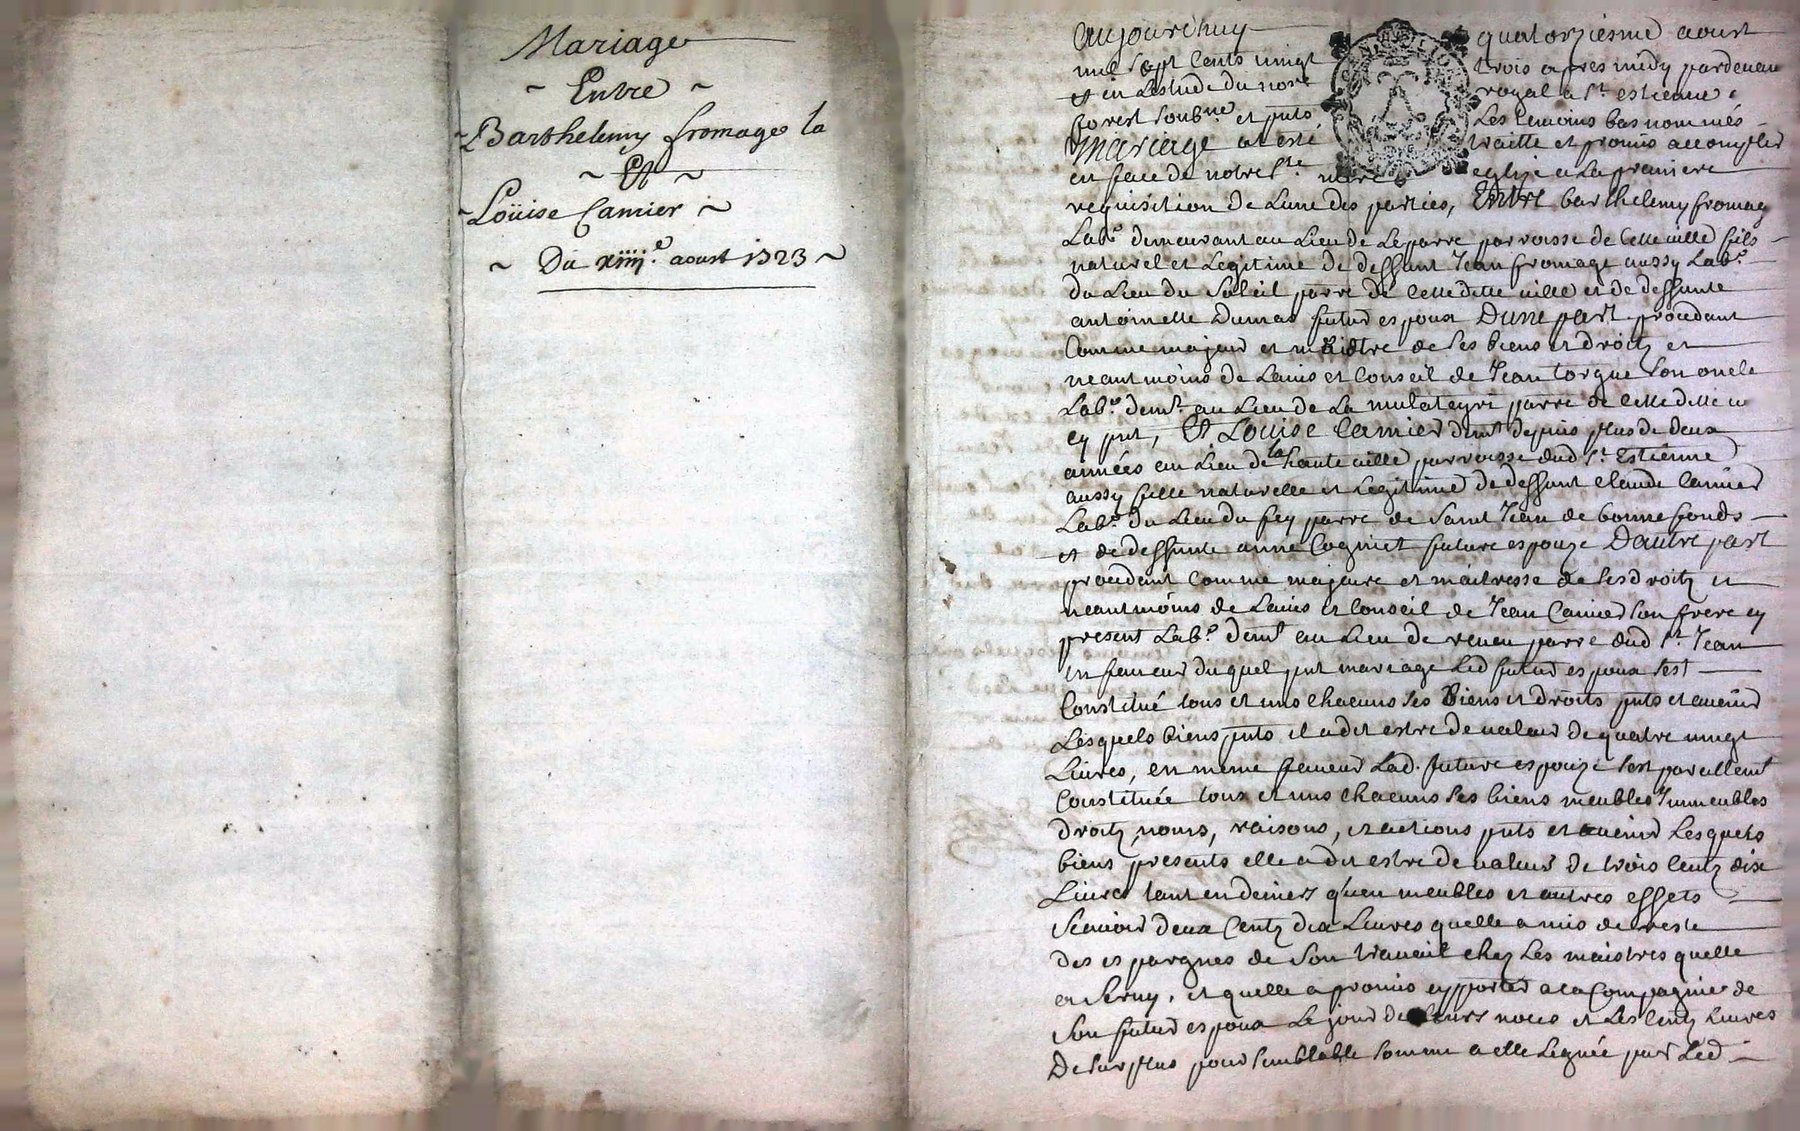 Mariage
~ Entre ~
~ Barthelemy fromage la
~ Et ~
~ Loüise Camier ~
~ Du xiiii.e aoust 1723 ~
Aujourd'huy quatorziesme aoust
mil sept cents vingt trois apres midy pardevant
et en Lestude du no.re royal a S.t estienne
forest soubne et pnts Les temoins bas nommés
Mariage at esté traitté et promis accomplir
en face de notre S.te mere eglize a La premiere
requisition de Lune des parties, Entre barthelemy fromag
Lab.r demeurant au Lieu de parroisse de Cette ville fils
naturel et Legitime de deffunt Jean fromage aussy Lab.r
du Lieu du Soleil parre de Cetteditte ville et de deffunte
antoinette Dumas futur espoux Dune part procedant
Comme majeur et maistre de ses biens et droitz et
neantmoins de Lavis et Conseil de Jean torgue Son oncle
Lab.r dem.t au Lieu de La mulateyri parre de Cetteditte v
cy pnt, Et Louise Camier dem.t depuis plus de deux
années au Lieu de la haute ville parroisse dud S.t Estienne
aussy fille naturelle et Legitime de deffunt Claude Camier
Lab.r du Lieu du fey parre de Saint Jean de bonnefonds
et de deffunte anne Cognet future espouze Dautre part
procedant Comme majeure et maitresse de ses droitz et
neantmoins de Lavis et Conseil de Jean Camier Son frere cy
present Lab.r dem.t au Lieu de reveu parre dud S.t Jean
En faveur duquel pnt mariage Led futur espoux sest
Constitué tous et uns chacuns ses Biens et droits pnts et avenir
Lesquels biens pnts il a dit estre de valeur de quatre vingt
Livres, en meme faveur Lad. future espouze sest pareillem.t
Constituée tous et uns chacuns ses biens meubles Immeubles
droitz, noms, raisons, et actions pnts et avenir Lesquels
biens presents elle a dit estre de valeur de trois Centz dix
Livres tant en deniers quen meubles et autres effets
Scavoir deux Centz dix Livres quelle a mis de reste
des espargnes de Son travail chez Les maistres quelle
a Servy, et quelle a promis apporter a la Compagnie de
Son futur espoux Le jour de Leurs noces et Les Centz Livres
De Surplus pour Semblable Somme a elle Leguée par Led